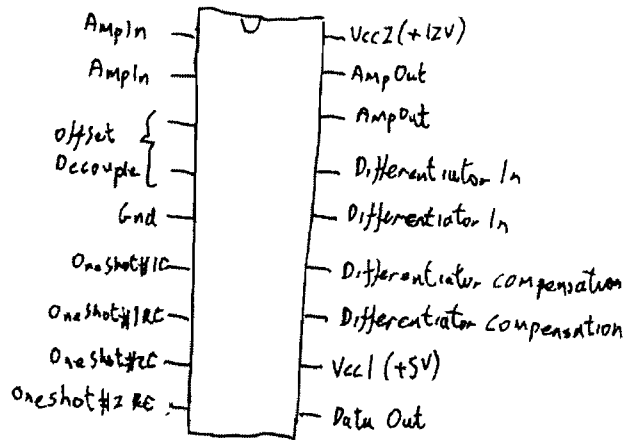 AmpIn
AmpIn
Offset
Decouple
Gnd
Oneshot#1C
Oneshot#1RC
Oneshot#2C
Oneshot#2 RC
Vcc2 (+12V)
AmpOut
AmpOut
Differentiator In
Differentiator In
Differentiator compensation
Differentiator compensation
Vcc1 (+5V)
Data Out